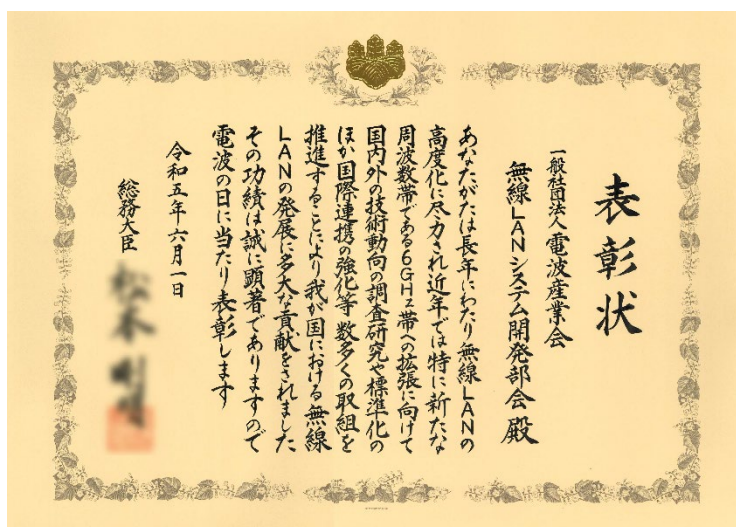 表彰状
一般社団法人電波産業会
無線LANシステム開発部会殿
あなたがたは長年にわたり無線LANの
高度化に尽力され近年では特に新たな
周波数帯である6GHz帯への拡張に向けて
国内外の技術動向の調査研究や標準化の
ほか国際連携の強化等数多くの取組を
推進することにより我が国における無線
LANの発展に多大な貢献をされました
その功績は誠に顕著でありますので
電波の日に当たり表彰します
令和五年六月一日
総務大臣